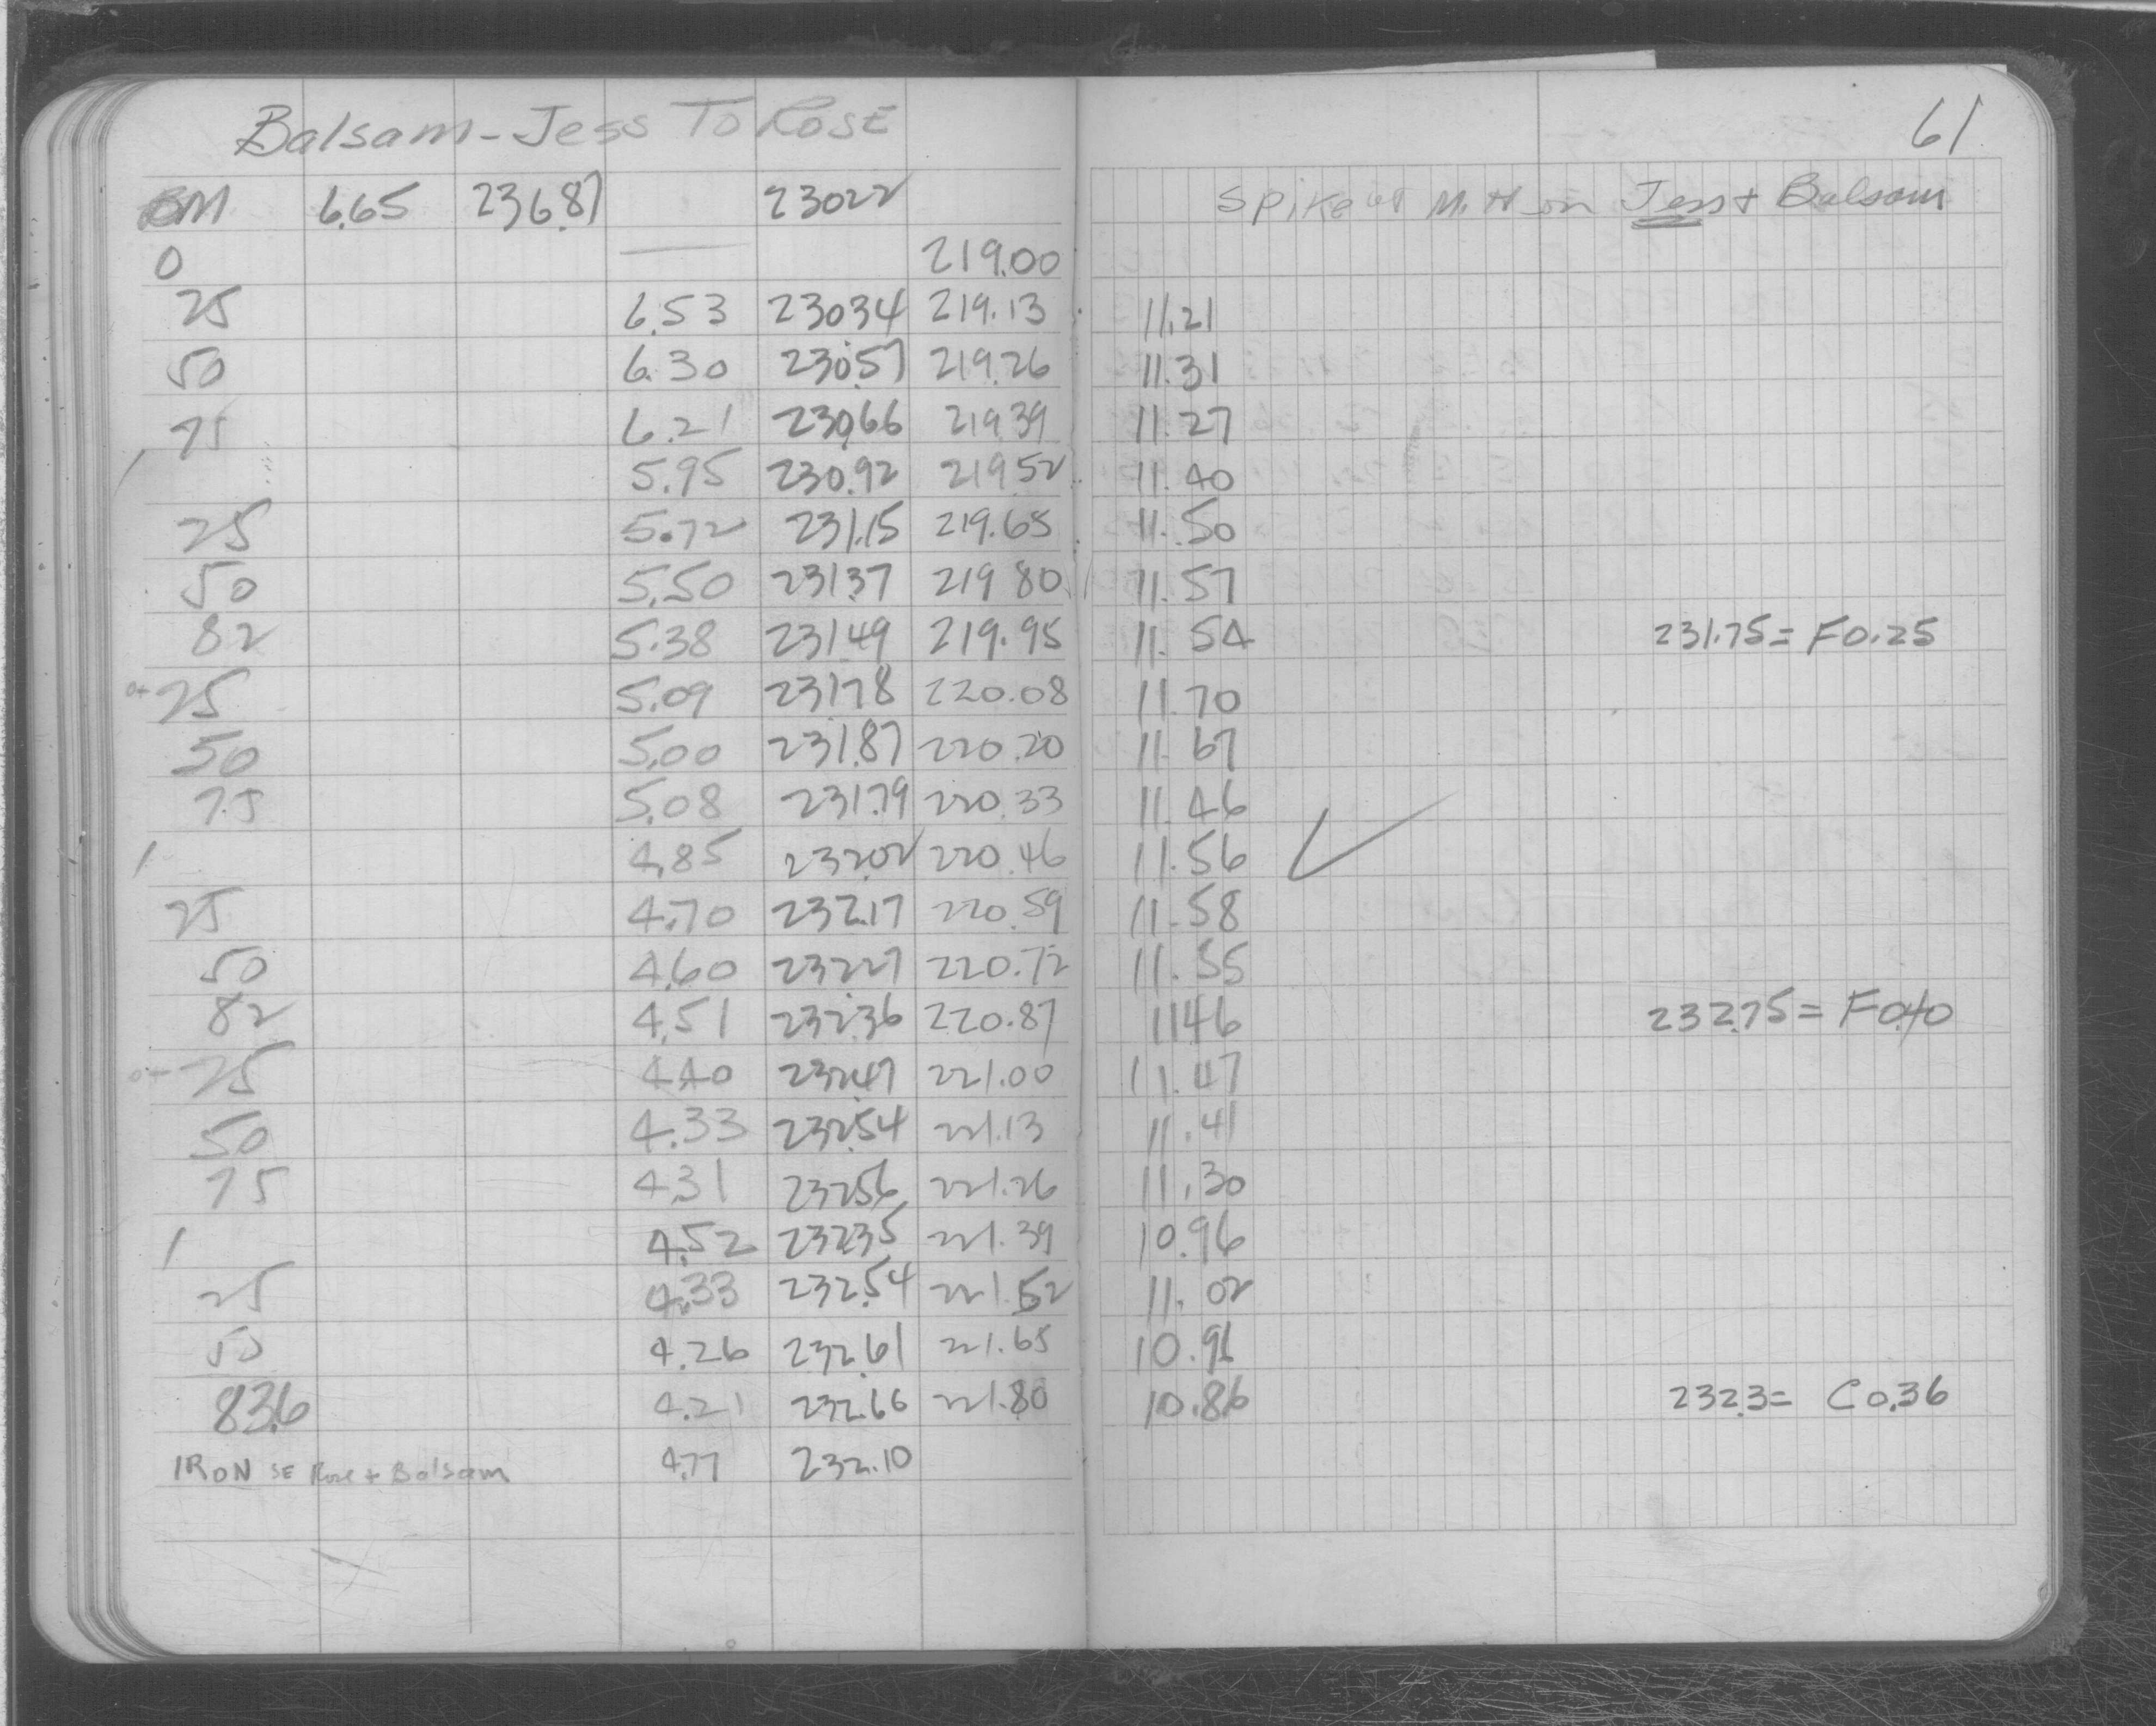 Balsam - Jess To Rose
61
BM 6.65 236.87 230.22 Spike at M.H. on Jess + Balsam
0 — 219.00
25 6.53 230.34 219.13 11.21
50 6.30 230.57 219.26 11.31
75 6.21 230.66 219.39 11.27
1 5.95 230.92 219.52 11.40
25 5.72 231.15 219.65 11.50
50 5.50 231.37 219.80 11.57
82 5.38 231.49 219.95 11.54 231.75 = F0.25
0+25 5.09 231.78 220.08 11.70
50 5.00 231.87 220.20 11.67
75 5.08 231.79 220.33 11.46
1 4.85 232.02 220.46 11.56 ✓
25 4.70 232.17 220.59 11.58
50 4.60 232.27 220.72 11.55
82 4.51 232.36 220.87 11.46 232.75 = F0.40
0+25 4.40 232.47 221.00 11.47
50 4.33 232.54 221.13 11.41
75 4.31 232.56 221.26 11.30
1 4.52 232.35 221.39 10.96
25 4.33 232.54 221.52 11.02
50 4.26 232.61 221.65 10.96
83.6 4.21 232.66 221.80 10.86 232.3 = C0.36
IRON SE Rose + Balsam 4.77 232.10